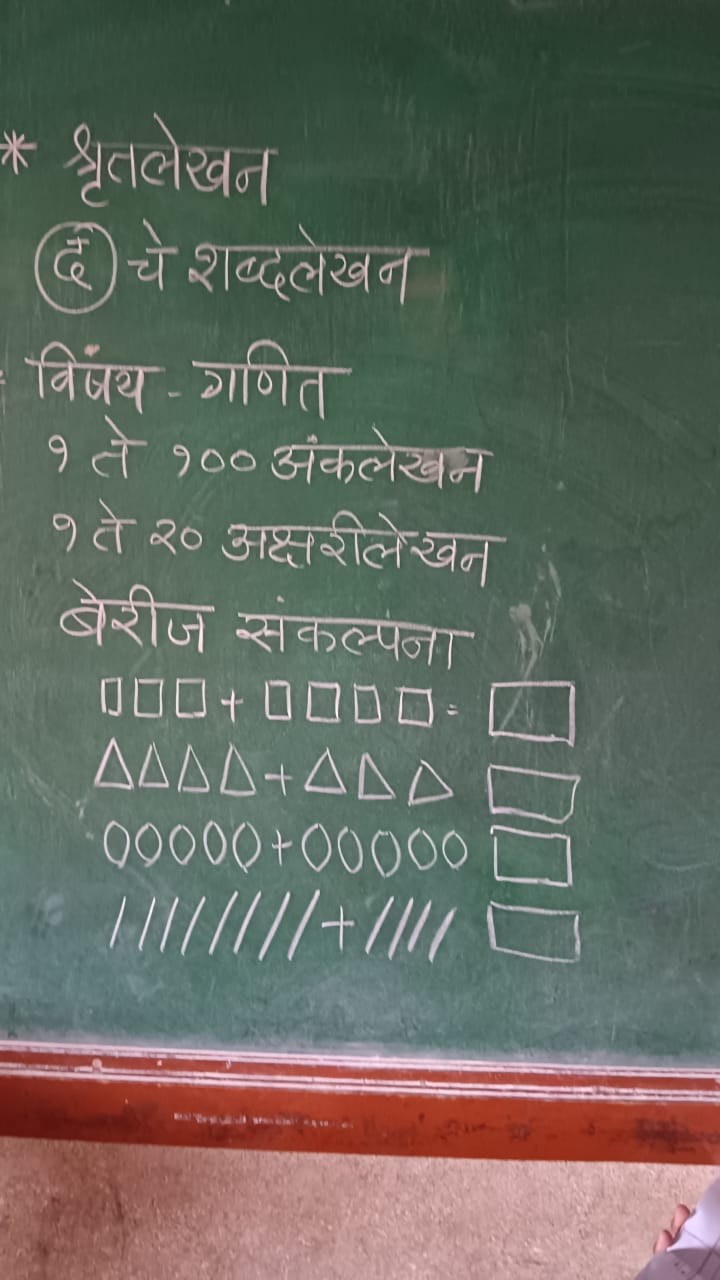 * श्रृतलेखन
दॅ चे शब्दलेखन
विषय - गणित
१ ते १०० अंकलेखन
१ ते २० अक्षरीलेखन
बेरीज संकल्पना
□□□ + □□□□ = □
△△△△ + △△△ □
OOOOO + OOOOO □
///////// + //// □